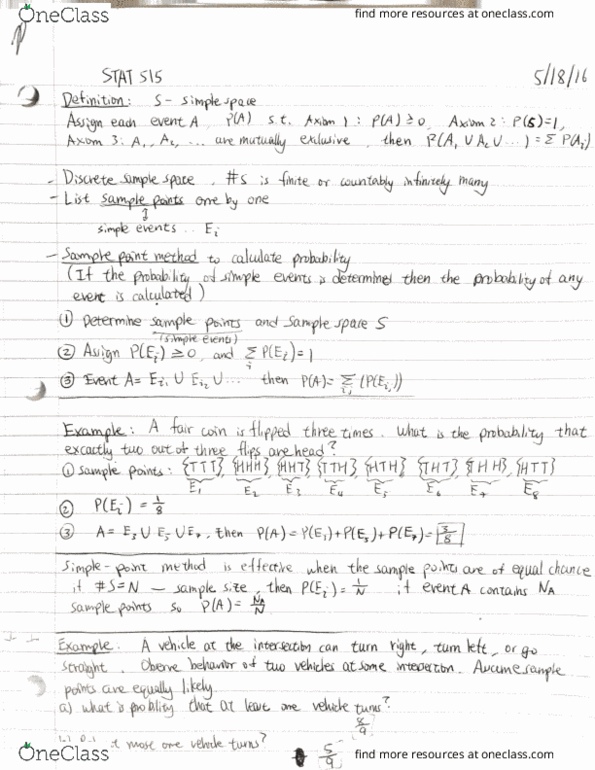 OneClass
find more resources at oneclass.com
STAT 515
5/18/16
Definition: S - simple space
Assign each event A, P(A) s.t. Axiom 1: P(A) ≥ 0, Axiom 2: P(S)=1,
Axiom 3: A₁, A₂, ... are mutually exclusive, then P(A₁ ∪ A₂ ∪ ...) = Σ P(Aᵢ)
- Discrete sample space, #S is finite or countably infinitely many
- List sample points one by one
simple events .. Eᵢ
- Sample point method to calculate probability
(If the probability of simple events is determined then the probability of any
event is calculated)
① Determine sample points and sample space S
(simple events)
② Assign P(Eᵢ) ≥ 0, and Σᵢ P(Eᵢ) = 1
③ Event A = Eᵢ₁ ∪ Eᵢ₂ ∪ ... then P(A) = Σ (P(Eᵢⱼ))
Example: A fair coin is flipped three times. What is the probability that
excactly two out of three flips are head?
① sample points: {TTT}, {HHH}, {HHT}, {TTH}, {HTH}, {THT}, {THH}, {HTT}
E₁ E₂ E₃ E₄ E₅ E₆ E₇ E₈
② P(Eᵢ) = 1/8
③ A = E₃ ∪ E₅ ∪ E₇, then P(A) = P(E₃)+P(E₅)+P(E₇) = 3/8
Simple-point method is effective when the sample points are of equal chance
if #S=N — sample size, then P(Eᵢ) = 1/N if event A contains N_A
sample points so P(A) = N_A/N
Example. A vehicle at the intersection can turn right, turn left, or go
straight. Oberve behavior of two vehicles at some intersection. Assume sample
points are equally likely.
a) what is probility that at leave one vehicle turns?
8/9
t most one vehicle turns? 5/9
OneClass
find more resources at oneclass.com